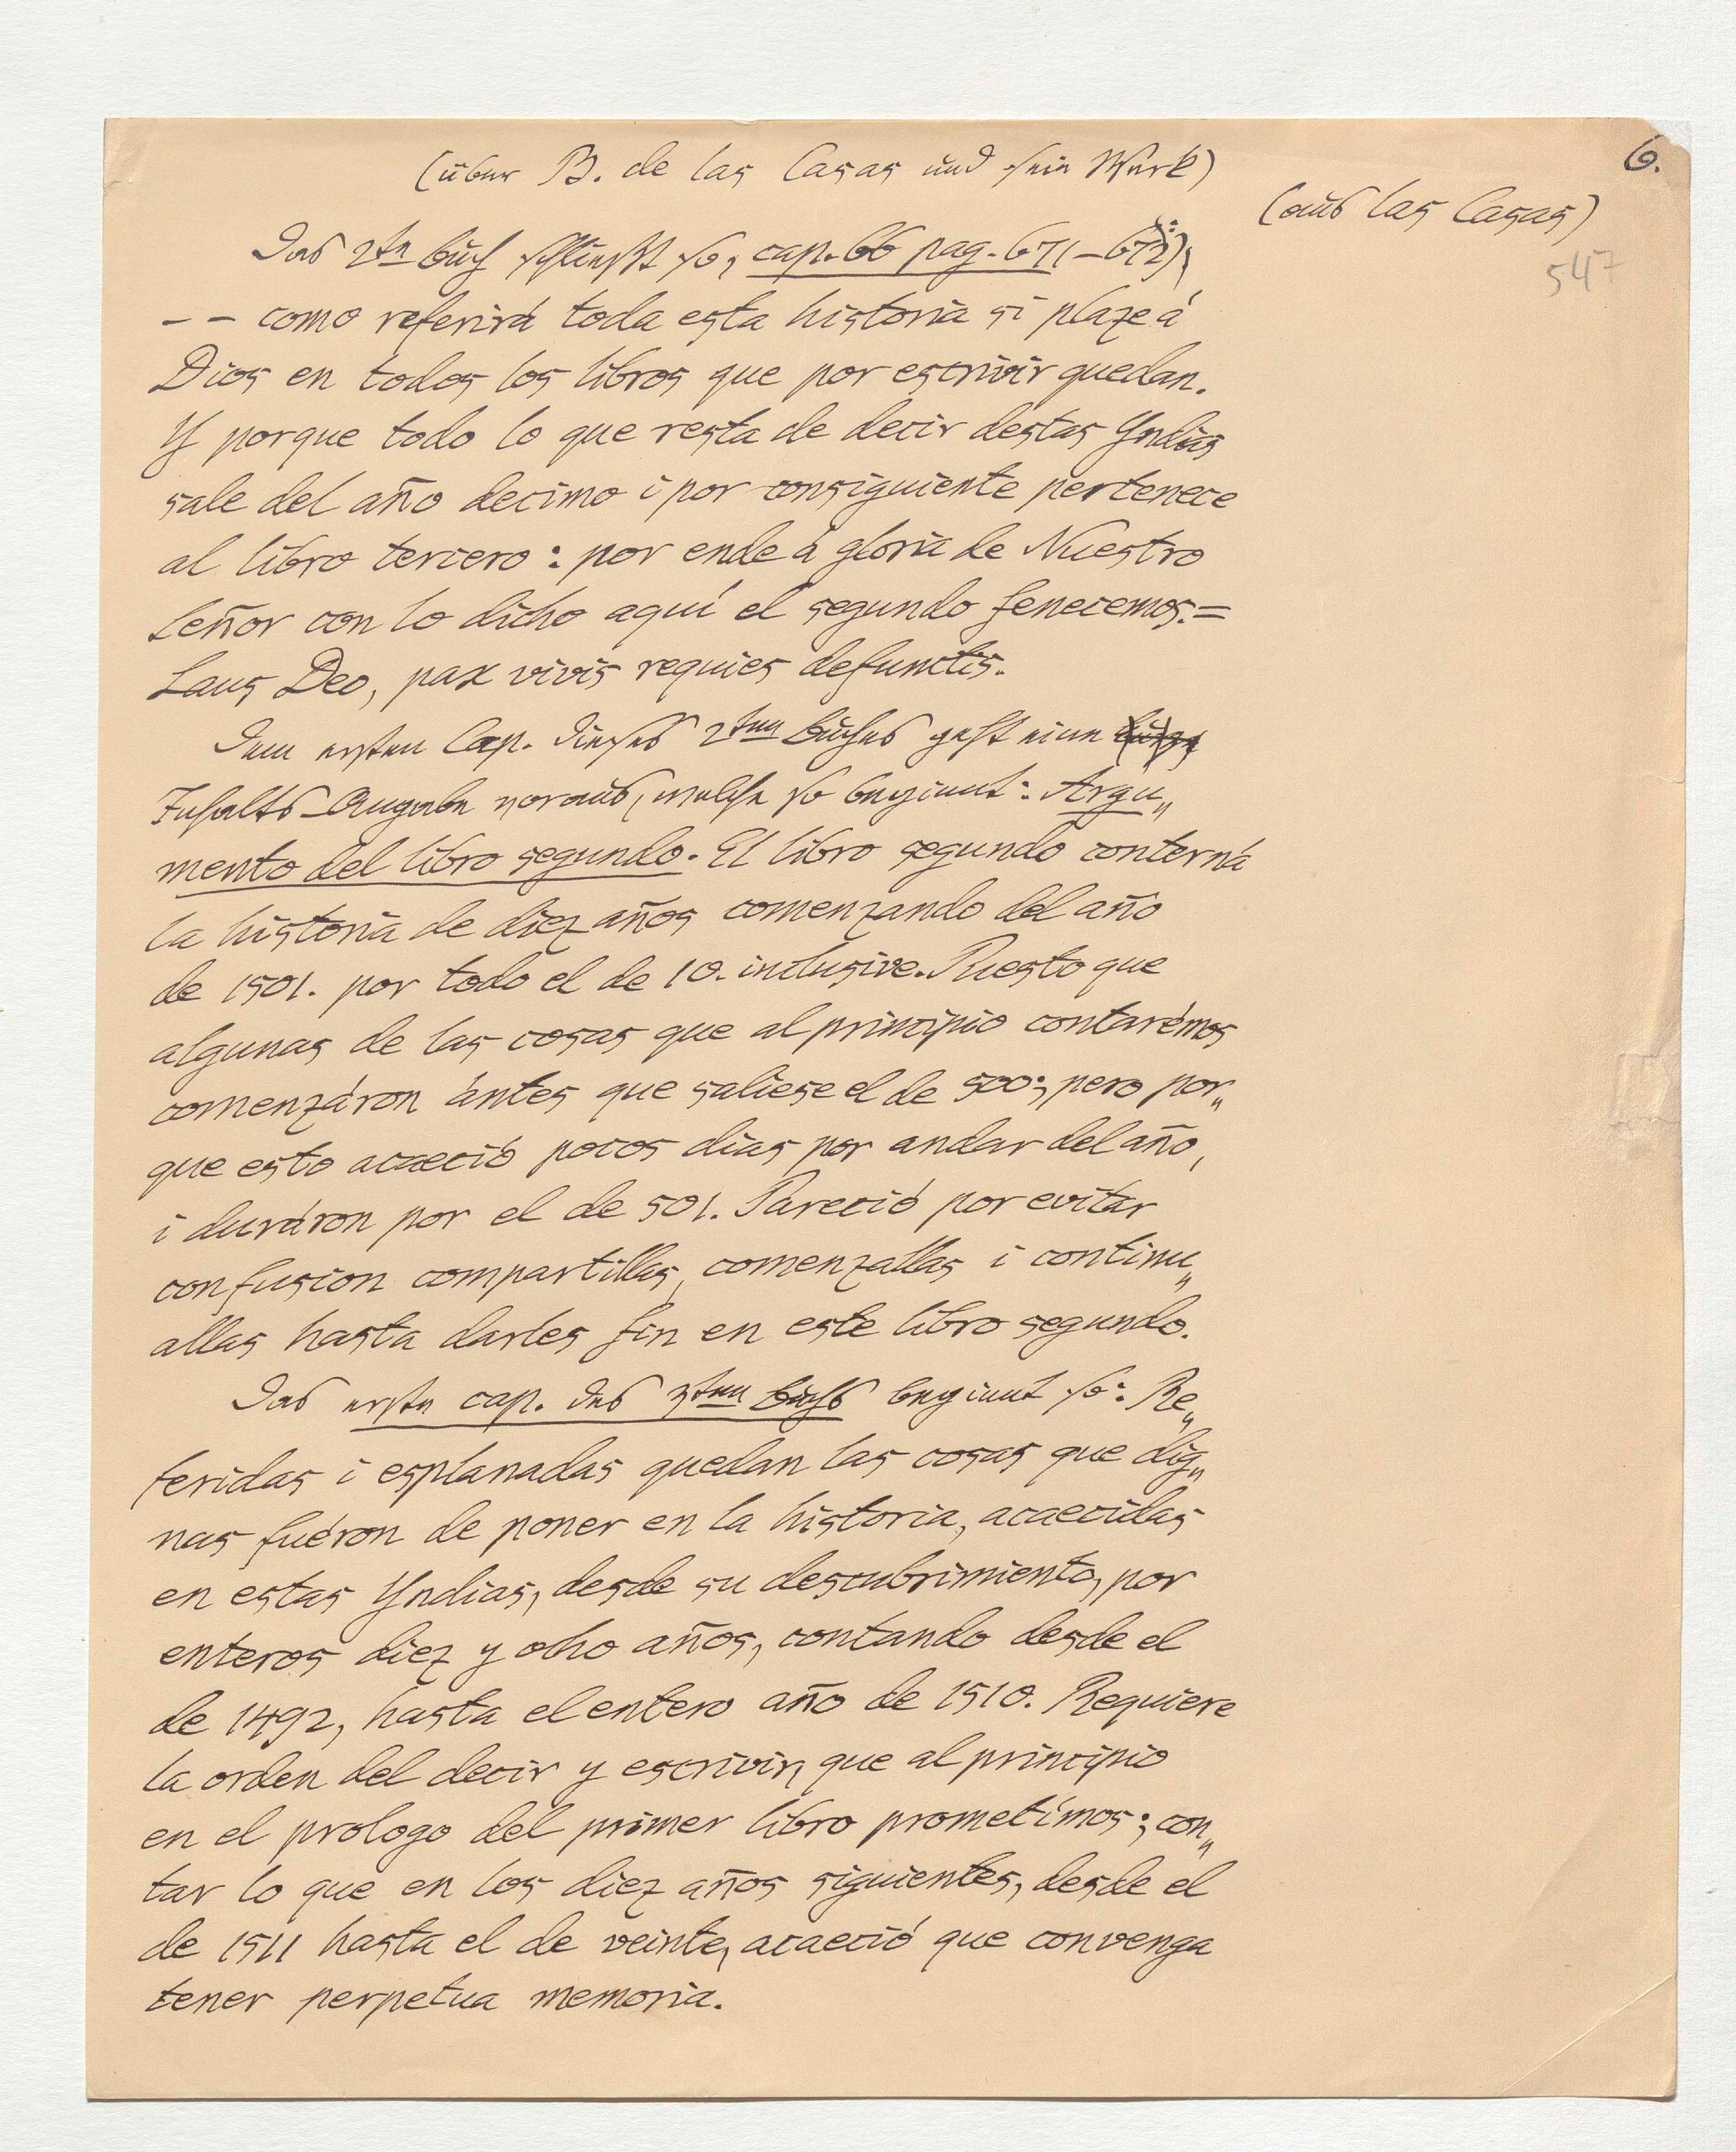 6.
(über B. de las Casas und sein Werk)
(aus las Casas)
547
Das 2te Buch schließt so, cap. 66 pag. 671–672);
– – como referirá toda esta historia si plaze á
Dios en todos los libros que por escrivir quedan.
Y porque todo lo que resta de decir destas Yndias
sale del año decimo i por consiguiente pertenece
al libro tercero: por ende á gloria de Nuestro
Señor con lo dicho aquí el segundo fenecemos.=
Laus Deo, pax vivis requies defunctis.
Dem ersten Cap. dieses 2ten Buches geht eine
Inhalts-Angabe voraus, welche so beginnt: Argu„
mento del libro segundo. El libro segundo conterná
la historia de diez años comenzando del año
de 1501. por todo el de 10. inclusive. Puesto que
algunas de las cosas que al principio contarémos
comenzáron ántes que saliese el de 500; pero por„
que esto acaeció pocos dias por andar del año,
i duráron por el de 501. Pareció por evitar
confusion compartillas, comenzallas i continu„
allas hasta darles fin en este libro segundo.
Das erste cap. des 3ten Buchs beginnt so: Re„
feridas i esplanadas quedan las cosas que dig„
nas fuéron de poner en la historia, acaecidas
en estas Yndias, desde su descubrimiento, por
enteros diez y ocho años, contando desde el
de 1492, hasta el entero año de 1510. Requiere
la orden del decir y escrivir, que al principio
en el prologo del primer libro prometímos; con„
tar lo que en los diez años siguientes, desde el
de 1511 hasta el de veinte, acaeció que convenga
tener perpetua memoria.